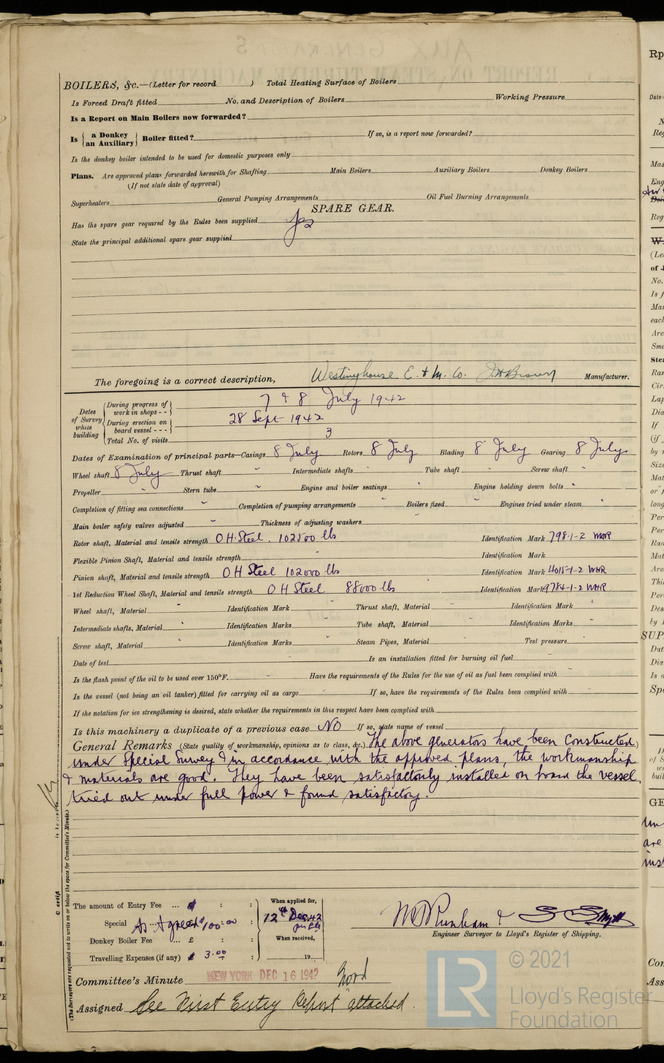 BOILERS, &c.—(Letter for record ) Total Heating Surface of Boilers
Is Forced Draft fitted No. and Description of Boilers Working Pressure
Is a Report on Main Boilers now forwarded?
Is { a Donkey / an Auxiliary } Boiler fitted? If so, is a report now forwarded?
Is the donkey boiler intended to be used for domestic purposes only
Plans. Are approved plans forwarded herewith for Shafting Main Boilers Auxiliary Boilers Donkey Boilers
(If not state date of approval)
Superheaters General Pumping Arrangements Oil Fuel Burning Arrangements
SPARE GEAR.
Has the spare gear required by the Rules been supplied yes
State the principal additional spare gear supplied
The foregoing is a correct description, Westinghouse E. & M. Co. Manufacturer.
Dates of Survey while building
During progress of work in shops - - 7 & 8 July 1942
During erection on board vessel - - - 28 Sept 1942
Total No. of visits 3
Dates of Examination of principal parts—Casings 8 July Rotors 8 July Blading 8 July Gearing 8 July
Wheel shaft 8 July Thrust shaft " Intermediate shafts " Tube shaft " Screw shaft "
Propeller " Stern tube " Engine and boiler seatings " Engine holding down bolts "
Completion of fitting sea connections " Completion of pumping arrangements " Boilers fixed " Engines tried under steam "
Main boiler safety valves adjusted " Thickness of adjusting washers
Rotor shaft, Material and tensile strength O H Steel. 102500 lbs Identification Mark 798-1-2 WHR
Flexible Pinion Shaft, Material and tensile strength Identification Mark
Pinion shaft, Material and tensile strength O H Steel 102000 lbs Identification Mark 4015-1-2 WHR
1st Reduction Wheel Shaft, Material and tensile strength O H Steel 88000 lbs Identification Mark 9784-1-2 WHR
Wheel shaft, Material " Identification Mark " Thrust shaft, Material " Identification Mark "
Intermediate shafts, Material " Identification Marks " Tube shaft, Material " Identification Marks "
Screw shaft, Material " Identification Marks " Steam Pipes, Material " Test pressure
Date of test Is an installation fitted for burning oil fuel
Is the flash point of the oil to be used over 150°F. Have the requirements of the Rules for the use of oil as fuel been complied with
Is the vessel (not being an oil tanker) fitted for carrying oil as cargo If so, have the requirements of the Rules been complied with
If the notation for ice strengthening is desired, state whether the requirements in this respect have been complied with
Is this machinery a duplicate of a previous case No If so, state name of vessel
General Remarks (State quality of workmanship, opinions as to class, &c.) The above generators have been constructed
under Special Survey & in accordance with the approved plans, the workmanship
& materials are good. They have been satisfactorily installed on board the vessel
tried out under full power & found satisfactory.
The amount of Entry Fee ... £ : : When applied for,
Special As Agreed $100.00 12th Dec 42
Donkey Boiler Fee ... £ : : When received,
Travelling Expenses (if any) $ 3.00 19
Engineer Surveyor to Lloyd's Register of Shipping.
Committee's Minute NEW YORK DEC 16 1942
Assigned See First Entry Report attached.
© 2021
LR
Lloyd's Register
Foundation